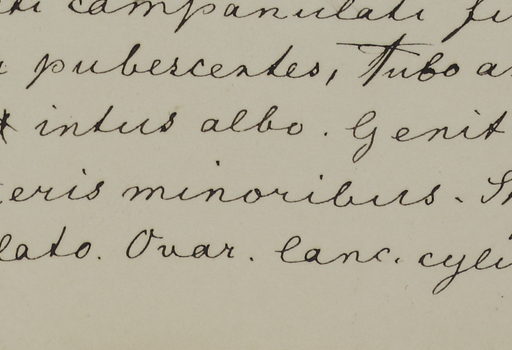 campanulati
pubescentes, Tubo
intus albo. Genit
eris minoribus. S
lato. Ovar. lanc. cyli